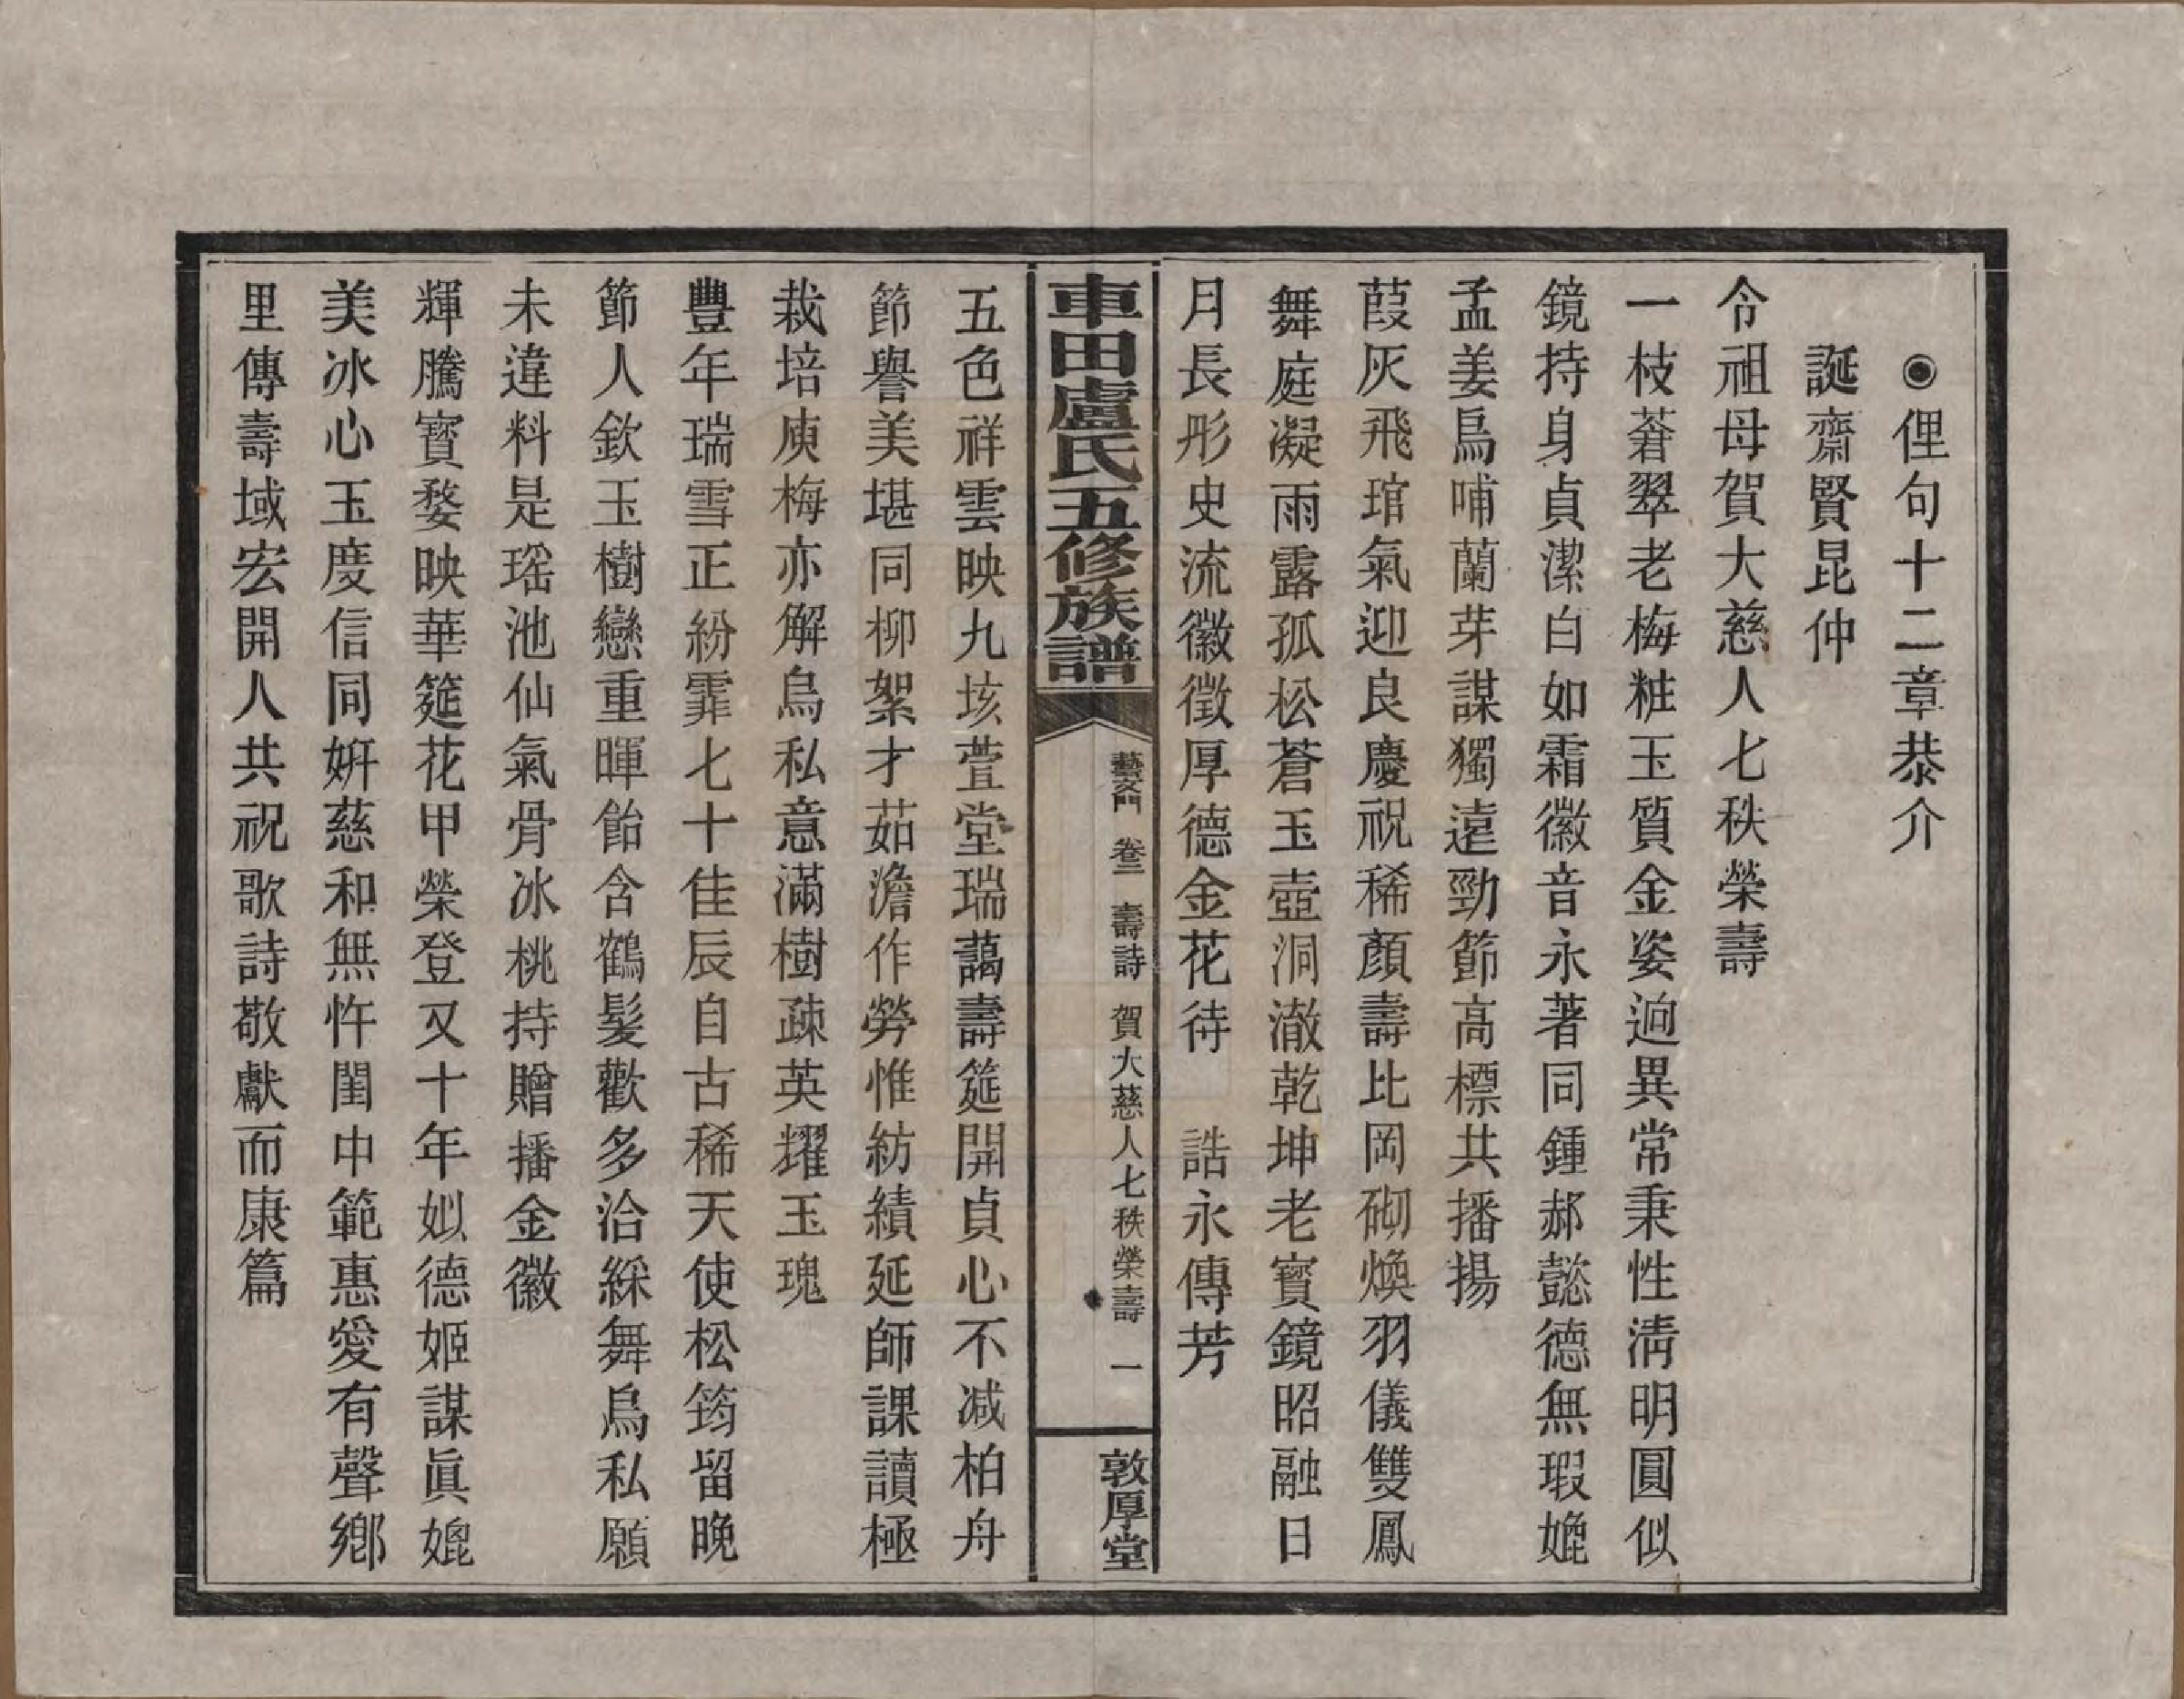 ◉俚句十二章恭介
誕齋賢昆仲
令祖母賀大慈人七秩榮壽
一枝蒼翠老梅粧玉質金姿逈異常秉性淸明圓似
鏡持身貞潔白如霜徽音永著同鍾郝懿德無瑕媲
孟姜烏哺蘭芽謀獨遠勁節高標共播揚
葭灰飛琯氣迎良慶祝稀顏壽比岡砌煥羽儀雙鳳
舞庭凝雨露孤松蒼玉壺洞澈乾坤老寶鏡昭融日
月長彤史流徽徵厚德金花待　誥永傳芳
車田盧氏五修族譜
藝文門　卷三　壽詩　賀大慈人七秩榮壽　一
敦厚堂
五色祥雲映九垓萱堂瑞藹壽筵開貞心不減柏舟
節譽美堪同柳絮才茹澹作勞惟紡績延師課讀極
栽培庾梅亦解烏私意滿樹疎英耀玉瑰
豐年瑞雪正紛霏七十佳辰自古稀天使松筠留晚
節人欽玉樹戀重暉飴含鶴髮歡多洽綵舞烏私願
未違料是瑶池仙氣骨冰桃持贈播金徽
輝騰寳婺映華筵花甲榮登又十年姒德姬謀眞媲
美冰心玉度信同姸慈和無忤閨中範惠愛有聲鄉
里傳壽域宏開人共祝歌詩敬獻而康篇